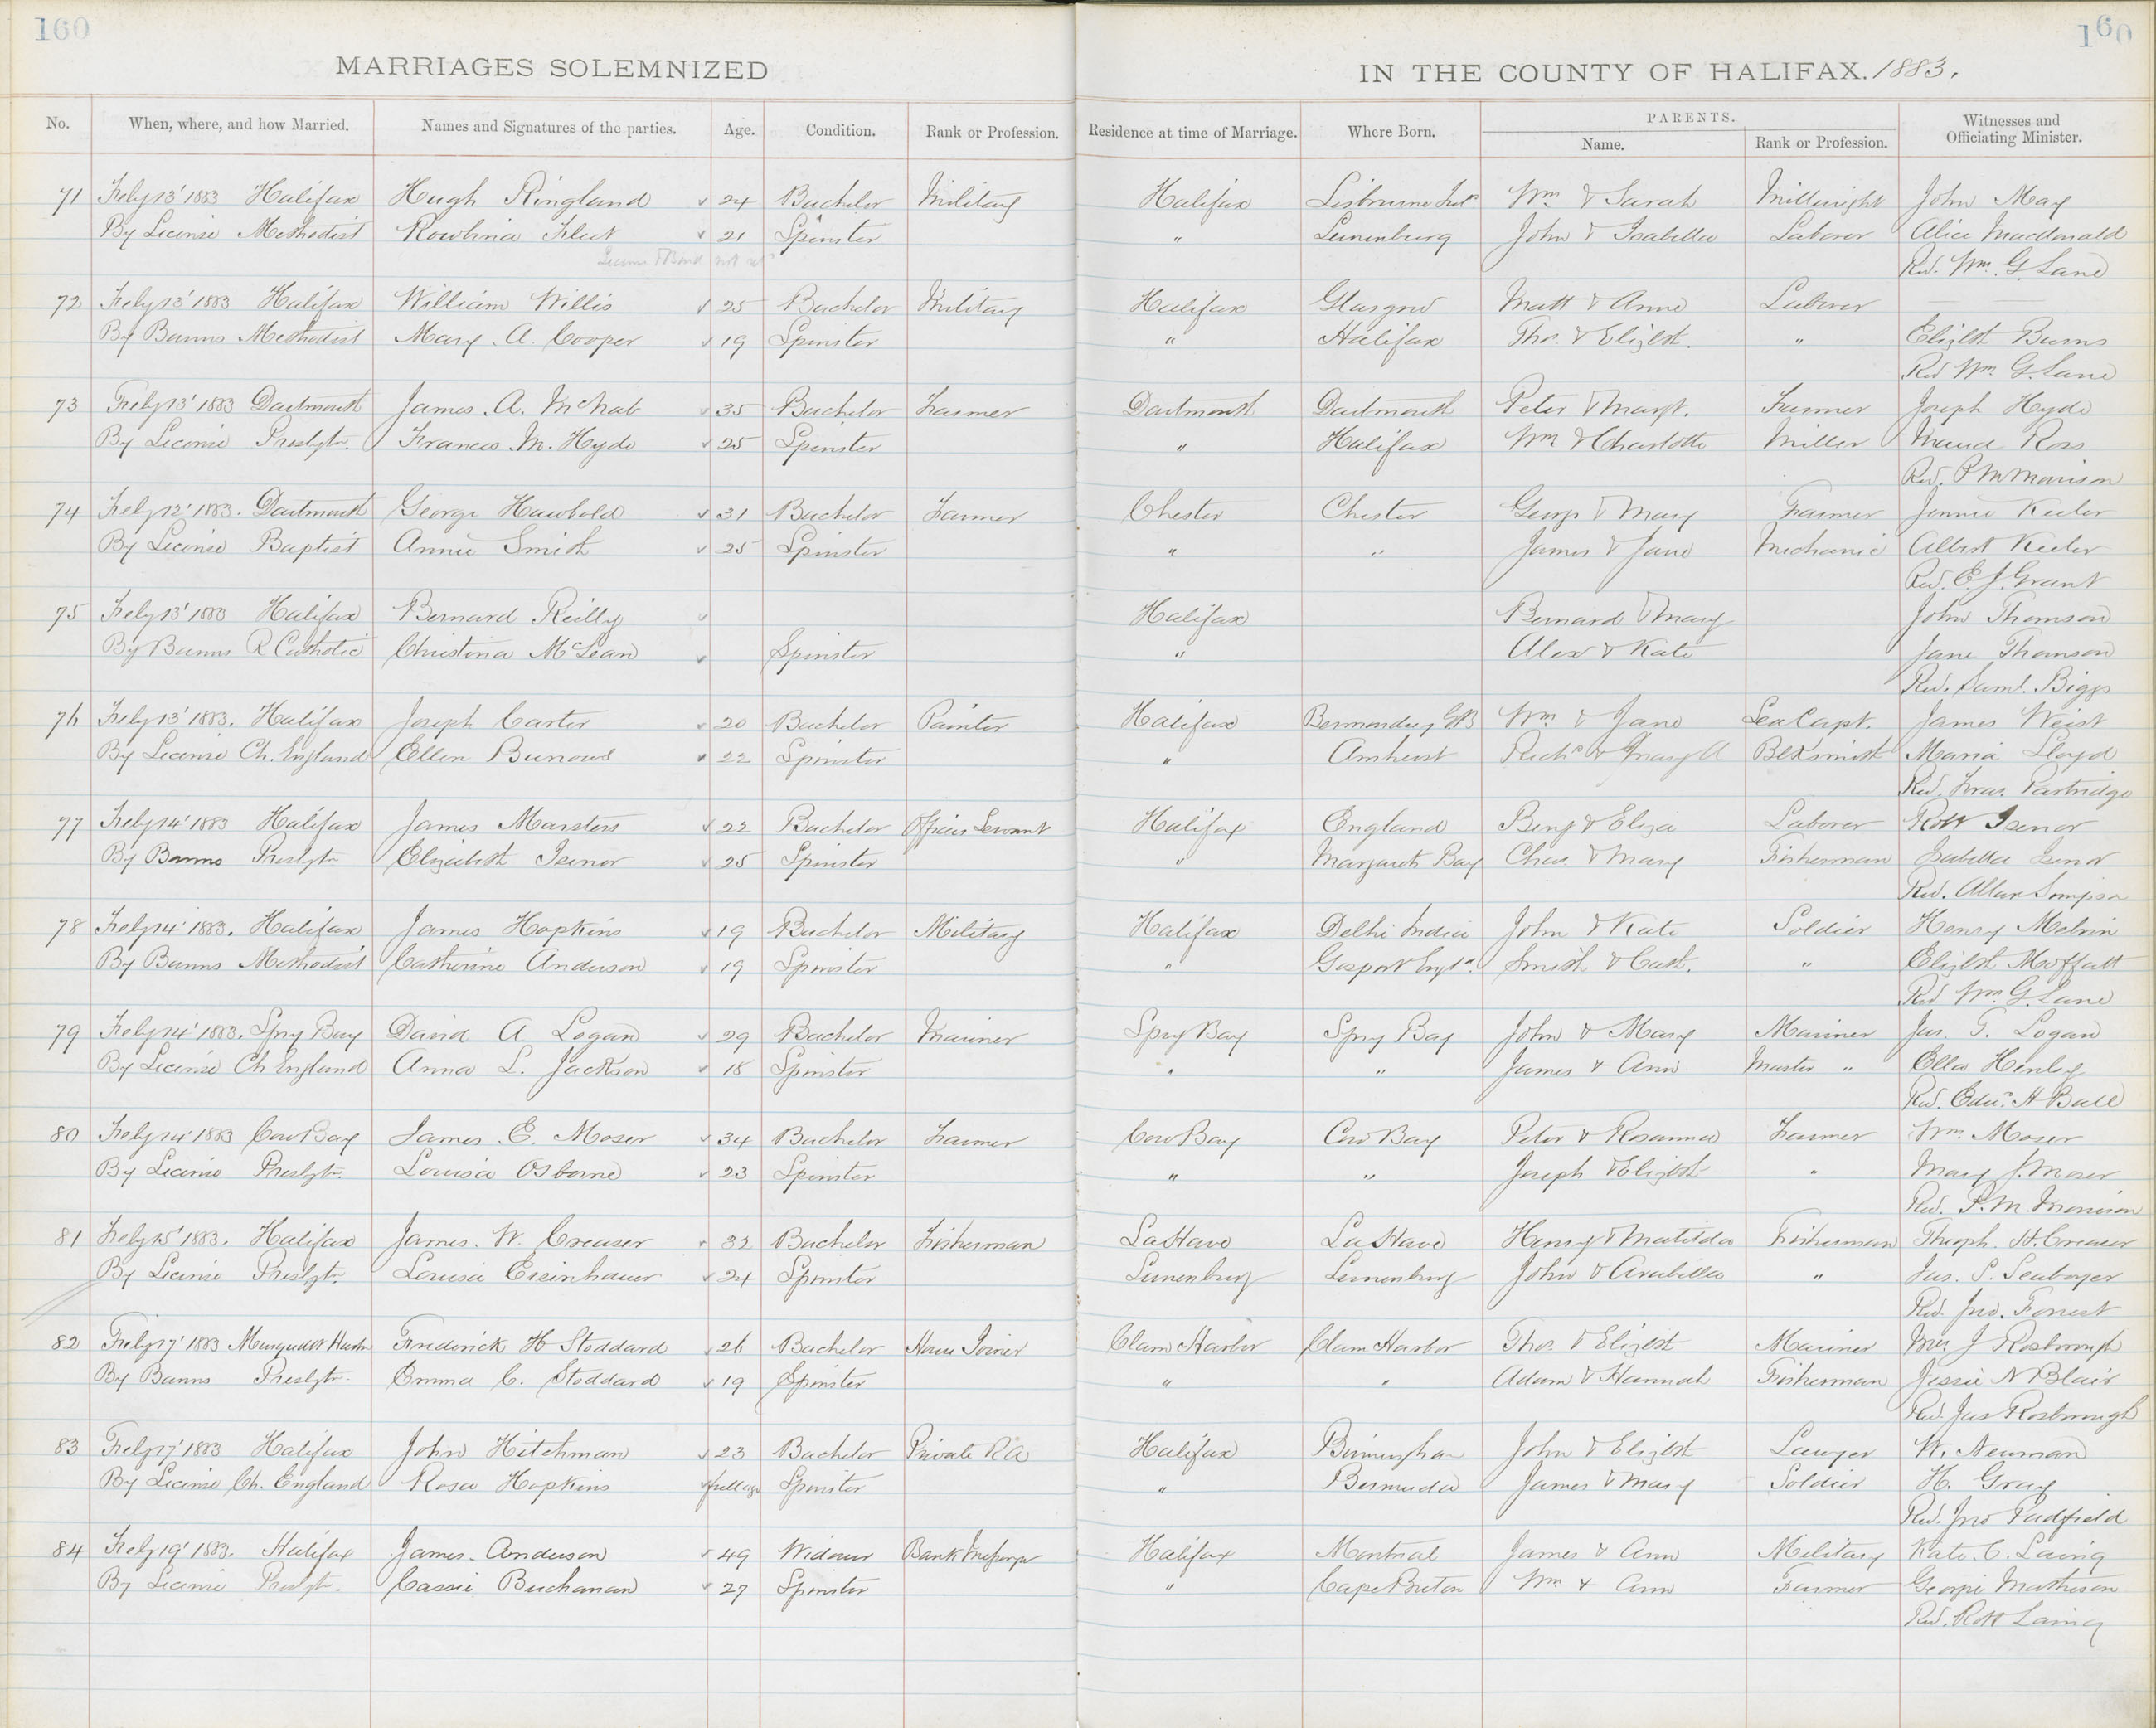 160
160
MARRIAGES SOLEMNIZED IN THE COUNTY OF HALIFAX. 1883.
No. When, where, and how Married. Names and Signatures of the parties. Age. Condition. Rank or Profession. Residence at time of Marriage. Where Born. PARENTS. Name. Rank or Profession. Witnesses and Officiating Minister.
71 Feby 13' 1883 Halifax Hugh Ringland 24 Bachelor Military Halifax Wm & Sarah Millwright John May
By License Methodist 21 Spinster " Lunenburg John & Isabella Laborer Alice Macdonald
License & Bond not
Rev. Wm. G. Lane
72 Feby 13' 1883 Halifax William Willis 25 Bachelor Military Halifax Glasgow Matt & Anne Laborer
By Banns Methodist Mary A. Cooper 19 Spinster " Halifax Thos. & Elizbt. " Elizbt Burns
Rev Wm. G. Lane
73 Feby 13' 1883 Dartmouth James A. McNab 35 Bachelor Farmer Dartmouth Dartmouth Peter & Margt. Farmer Joseph Hyde
By License Presbytn. Frances M. Hyde 25 Spinster " Halifax Wm & Charlotte Miller Maud Ross
Rev. P M Morrison
74 Feby 12' 1883. Dartmouth George Hawbold 31 Bachelor Farmer Chester Chester George & Mary Farmer Jennie Keeler
By License Baptist Annie Smith 25 Spinster " " James & Jane Mechanic Albert Keeler
Rev. E. J. Grant
75 Feby 13' 1883 Halifax Bernard Reilly Halifax Bernard & Mary John Thomson
By Banns R Catholic Christina McLean Spinster " Alex & Kate Jane Thomson
Rev. Saml. Biggs
76 Feby 13' 1883. Halifax Joseph Carter 20 Bachelor Painter Halifax Bermondsey GB Wm & Jane Sea Capt. James Weist
By License Ch. England Ellen Burrows 22 Spinster " Amherst Richd & Mary A Blksmith Maria Lloyd
Rev. Fras. Partridge
77 Feby 14' 1883 Halifax James Marsters 22 Bachelor Officers Servant Halifax England Benj & Eliza Laborer Robt Isenor
By Banns Presbytn Elizabeth Isenor 25 Spinster " Margarets Bay Chas. & Mary Fisherman Isabella Isenor
Rev. Allan Simpson
78 Feby 14' 1883. Halifax James Hopkins 19 Bachelor Military Halifax Delhi India John & Kate Soldier Henry Melvin
By Banns Methodist Catherine Anderson 19 Spinster " Gosport Engld. Smith & Cath. " Elizbt Moffatt
Rev Wm. G. Lane
79 Feby 14' 1883. Spry Bay David A Logan 29 Bachelor Mariner Spry Bay Spry Bay John & Mary Mariner Jas. T. Logan
By License Ch England Anna L. Jackson 18 Spinster " " James & Ann Master " Ella Henley
Rev. Edw. H Ball
80 Feby 14' 1883 Cow Bay James E. Moser 34 Bachelor Farmer Cow Bay Cow Bay Peter & Rosanna Farmer Wm. Moser
By License Presbytn. Louisa Osborne 23 Spinster " " Joseph & Elizbt " Mary J. Moser
Rev. P. M. Morrison
81 Feby 15' 1883. Halifax James. W. Creaser 32 Bachelor Fisherman LaHave LaHave Henry & Matilda Fisherman Theoph. H. Creaser
By License Presbytn. Louisa Eisenhauer 24 Spinster Lunenburg Lunenburg John & Arabella " Jas. S. Seaboyer
Rev. Jno. Forrest
82 Feby 17' 1883 Frederick H Stoddard 26 Bachelor House Joiner Clam Harbor Clam Harbor Thos. & Elizbt Mariner Mrs. J Rosborough
By Banns Presbytn. Emma C. Stoddard 19 Spinster " " Adam & Hannah Fisherman Jessie N Blair
Rev. Jas Rosborough
83 Feby 17' 1883 Halifax John Hitchman 23 Bachelor Private RA Halifax Birmingham John & Elizbt Lawyer W. Newman
By License Ch. England Rosa Hopkins full age Spinster " Bermuda James & Mary Soldier H. Gray
Rev. Jno Padfield
84 Feby 19' 1883. Halifax James. Anderson 49 Widower Bank Messenger Halifax Montreal James & Ann Military Kate. C. Laing
By License Presbytn. Cassie Buchanan 27 Spinster " Cape Breton Wm & Ann Farmer Georgie Mathison
Rev. Robt Laing